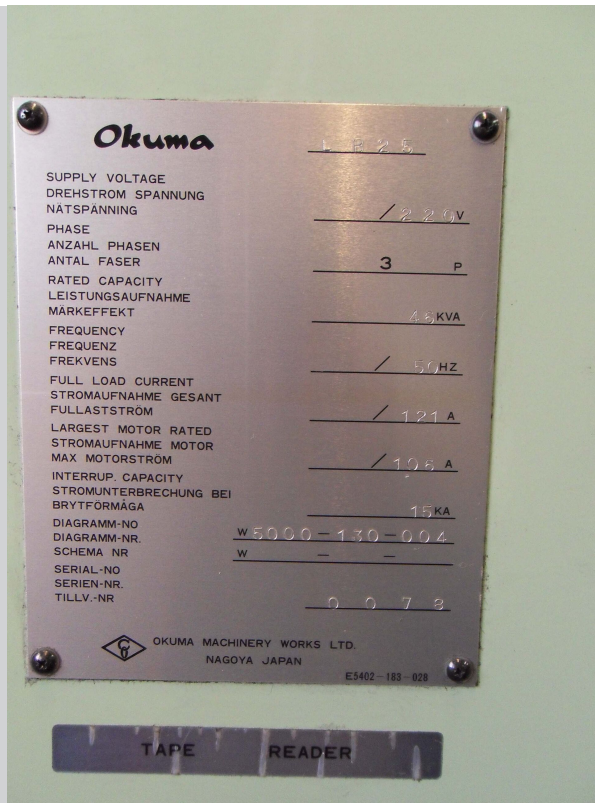 Okuma LB25
SUPPLY VOLTAGE
DREHSTROM SPANNUNG
NÄTSPÄNNING /220V
PHASE
ANZAHL PHASEN
ANTAL FASER 3 P
RATED CAPACITY
LEISTUNGSAUFNAHME
MÄRKEFFEKT 46KVA
FREQUENCY
FREQUENZ
FREKVENS / 50HZ
FULL LOAD CURRENT
STROMAUFNAHME GESANT
FULLASTSTRÖM / 121 A
LARGEST MOTOR RATED
STROMAUFNAHME MOTOR
MAX MOTORSTRÖM / 106 A
INTERRUP. CAPACITY
STROMUNTERBRECHUNG BEI
BRYTFÖRMÅGA 15KA
DIAGRAMM-NO
DIAGRAMM-NR. W 5000-130-004
SCHEMA NR W - -
SERIAL-NO
SERIEN-NR.
TILLV.-NR 0078
OKUMA MACHINERY WORKS LTD.
NAGOYA JAPAN
E5402-183-028
TAPE READER